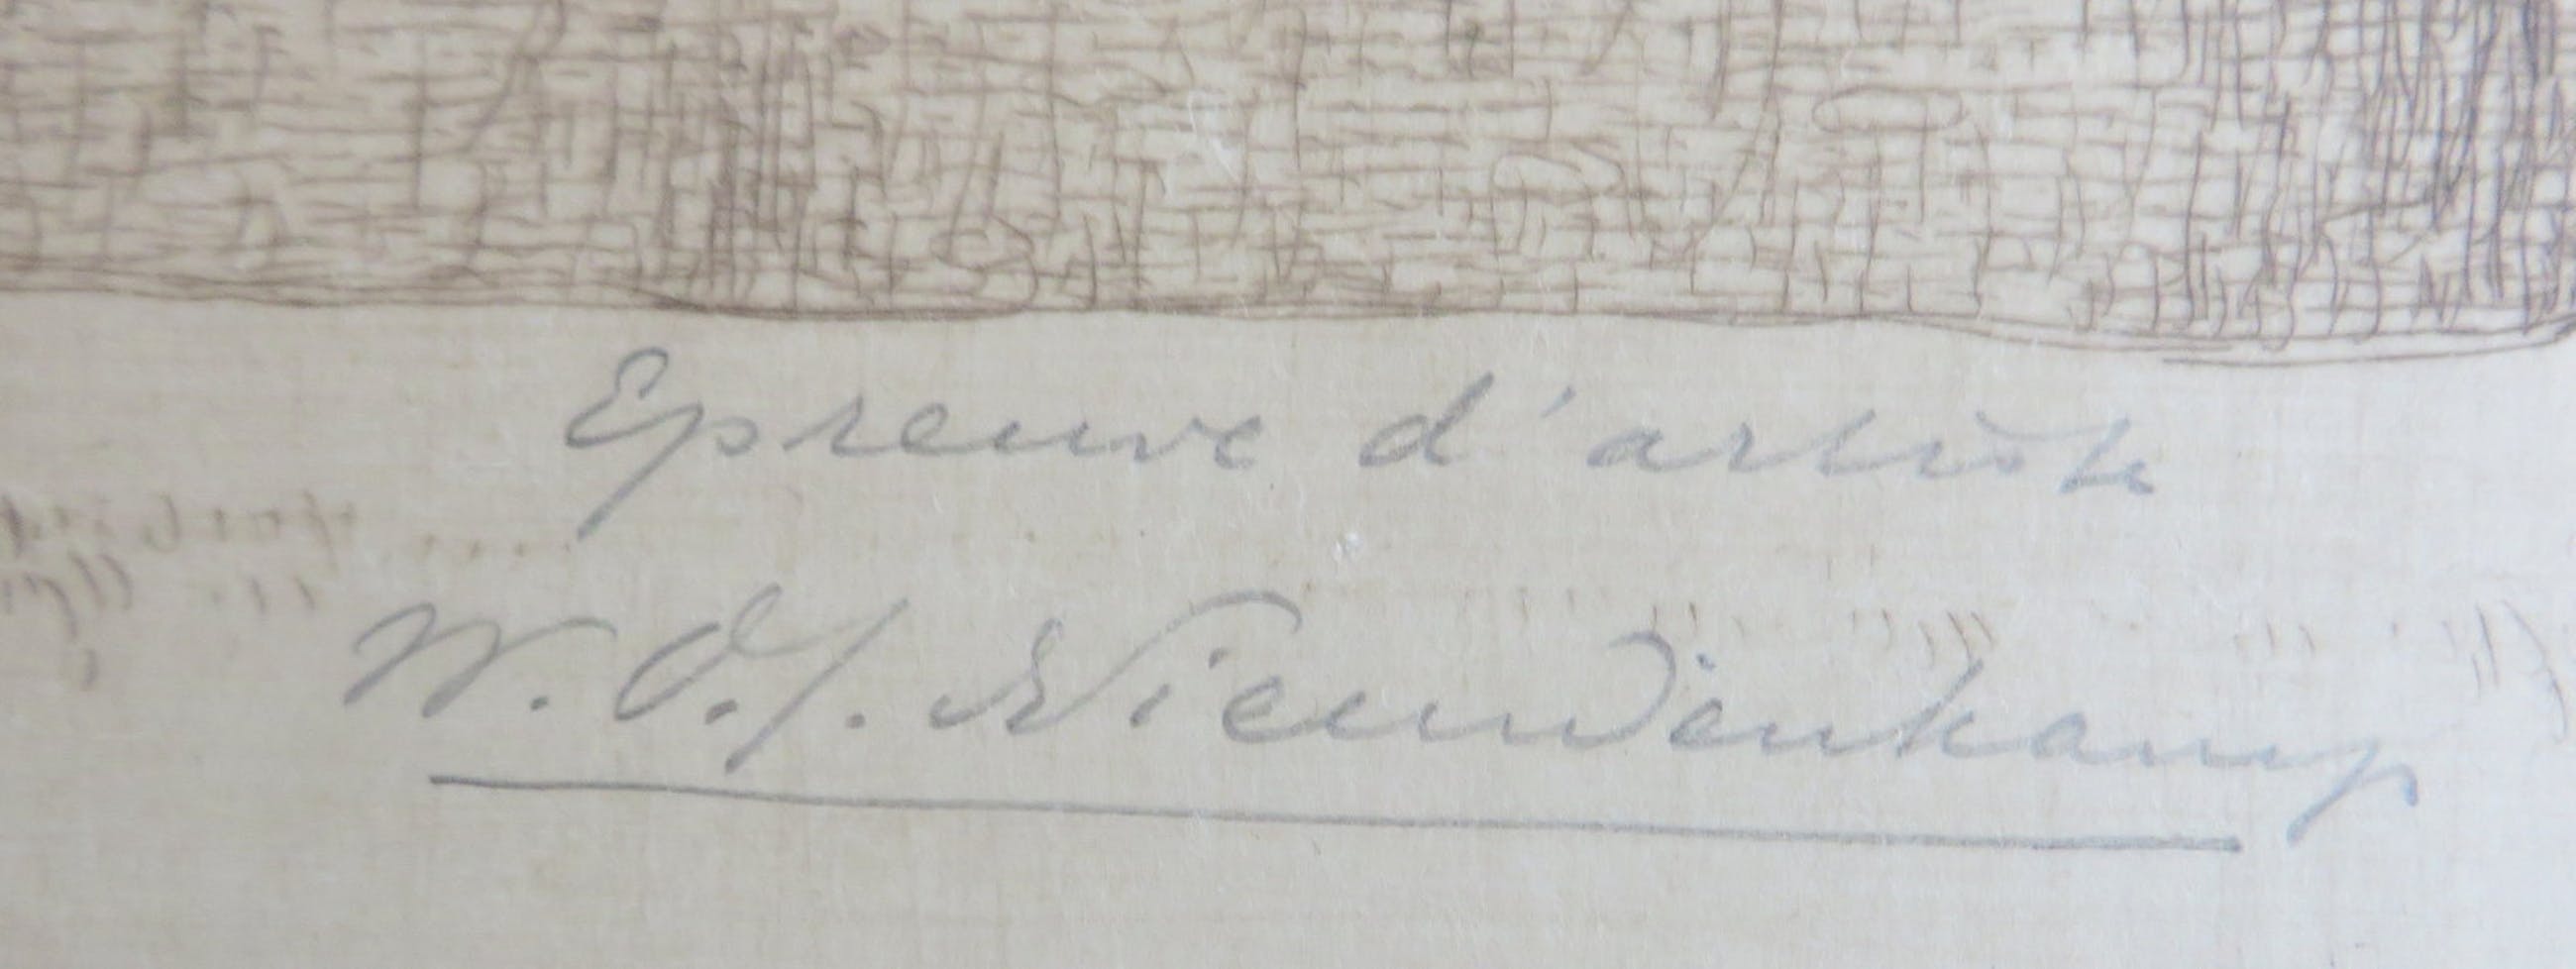 Epreuve d'artiste
W.O.J. Nieuwenkamp